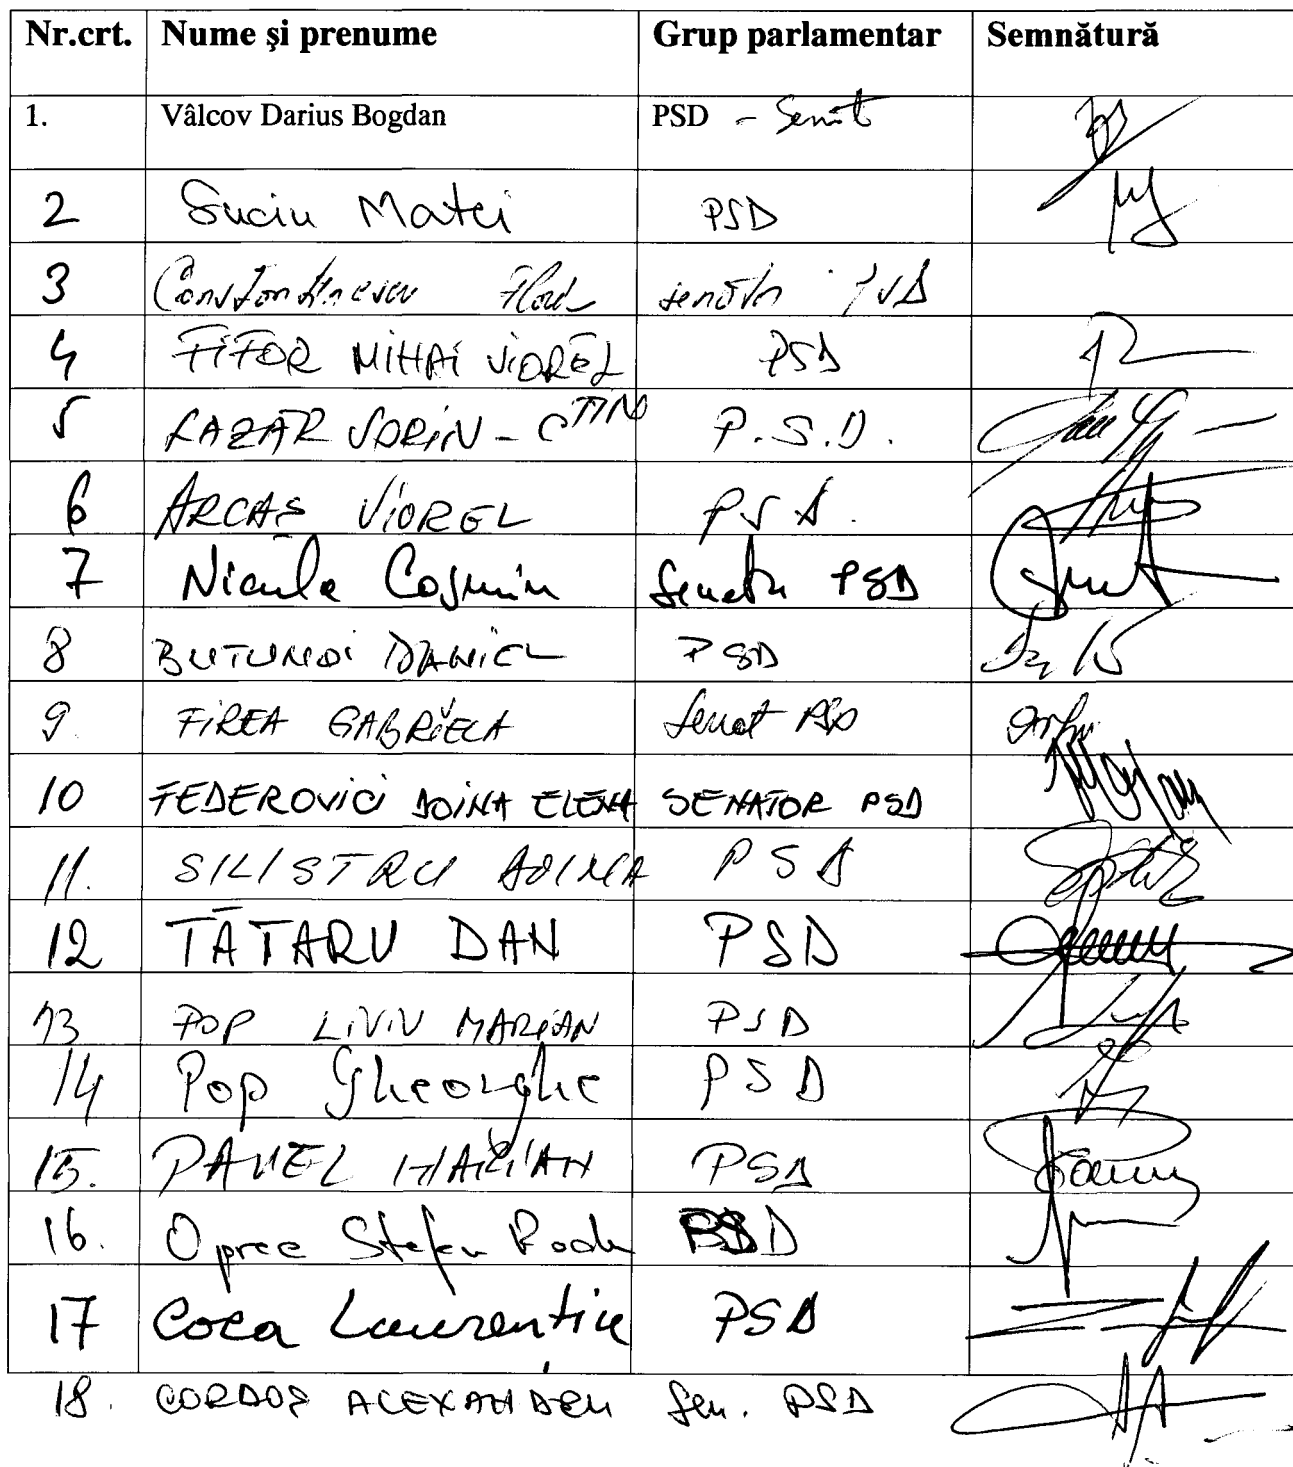 Nr.crt. Nume şi prenume Grup parlamentar Semnătură
1. Vâlcov Darius Bogdan PSD - Senat
2 Suciu Matei PSD
3 Constantinescu Florin senator PSD
4 FIFOR MIHAI VIOREL PSD
5 LAZĂR SORIN - CTIN P.S.D.
6 ARCAŞ VIOREL PSD.
7 Nicula Cosmin Senator PSD
8 BUTUNOI DANIEL PSD
9. FIREA GABRIELA Senat PSD
10 FEDEROVICI DOINA ELENA SENATOR PSD
11. SILISTRU DOINA PSD
12 TĂTARU DAN PSD
13 POP LIVIU MARIAN PSD
14 Pop Gheorghe PSD
15. PAVEL MARIAN PSD
16. Oprea Stefan Radu PSD
17 Coca Laurentiu PSD
18. CORDOŞ ALEXANDRU Sen. PSD